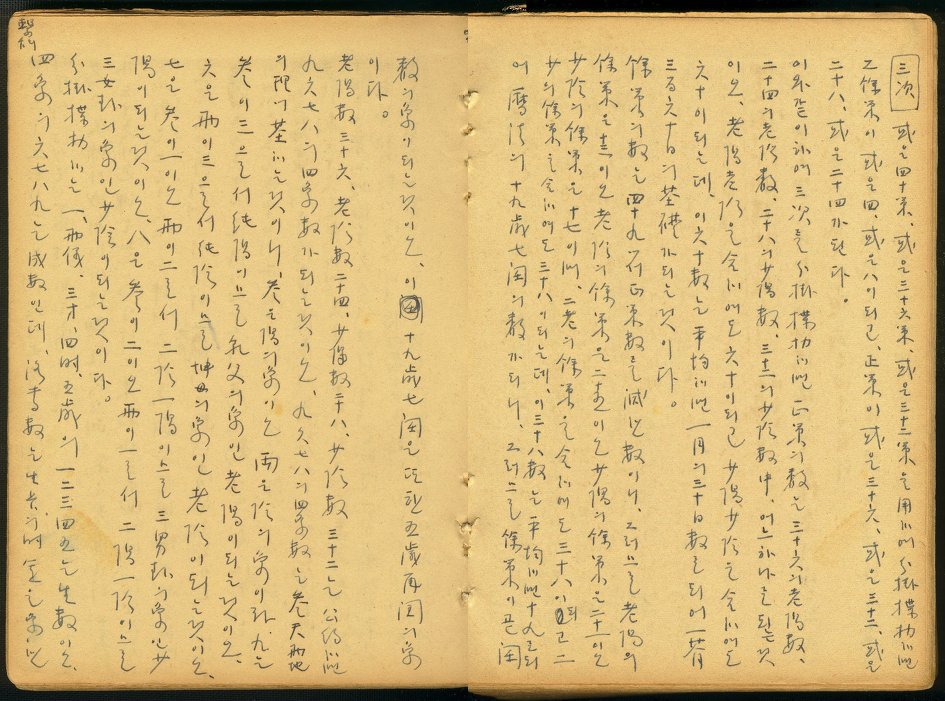 三次 或은四十策、或은三十六策、或은三十二策을用하여分掛揲扐하면
그餘策이或은四、或은八이되고、正策이或은三十六、或은三十二、或은
二十八、或은二十四가된다。
이와같이하여三次를分掛揲扐하면正策의數는三十六의老陽數、
二十四의老陰數、二十八의少陽數、三十二의少陰數中、어느하나를되는것
이오、老陽老陰을合하여도六十이되고少陽少陰을合하여도
六十이되는데、이六十數는平均하면一月의三十日數를되어一朞
三百六十日의基礎가되는것이다。
餘策의數는四十九에서正策數를減한數이니、그러므로老陽의
餘策은十三이오老陰의餘策은二十五이오少陽의餘策은二十一이오
少陰의餘策은十七이며、二老의餘策을合하여도三十八이되고二
少의餘策을合하여도三十八이되는데、이三十八數는平均하면十九로되
어曆法의十九歲七閏의數가되니、그러므로餘策이곧閏
數의象이되는것이오、이十九歲七閏은또한五歲再閏의象
이다。
老陽數三十六、老陰數二十四、少陽數二十八、少陰數三十二는公約하면
九六七八의四象數가되는것이오、九六七八의四象數는參天兩地
의理에基하는것이니、參은陽의象이오兩은陰의象이라、九는
參이三으로서純陽이므로乾父의象인老陽이되는것이오、
六은兩이三으로서純陰이므로坤母의象인老陰이되는것이오、
七은參이一이오兩이二로서二陰一陽이므로三男卦의象인少
陽이되는것이오、八은參이二이오兩이一로서二陽一陰이므로
三女卦의象인少陰이되는것이다。
分掛揲扐하는一、兩儀、三才、四時、五歲의一二三四五는生數이오、
四象의六七八九는成數인데、河圖數는生長의時
繫辭